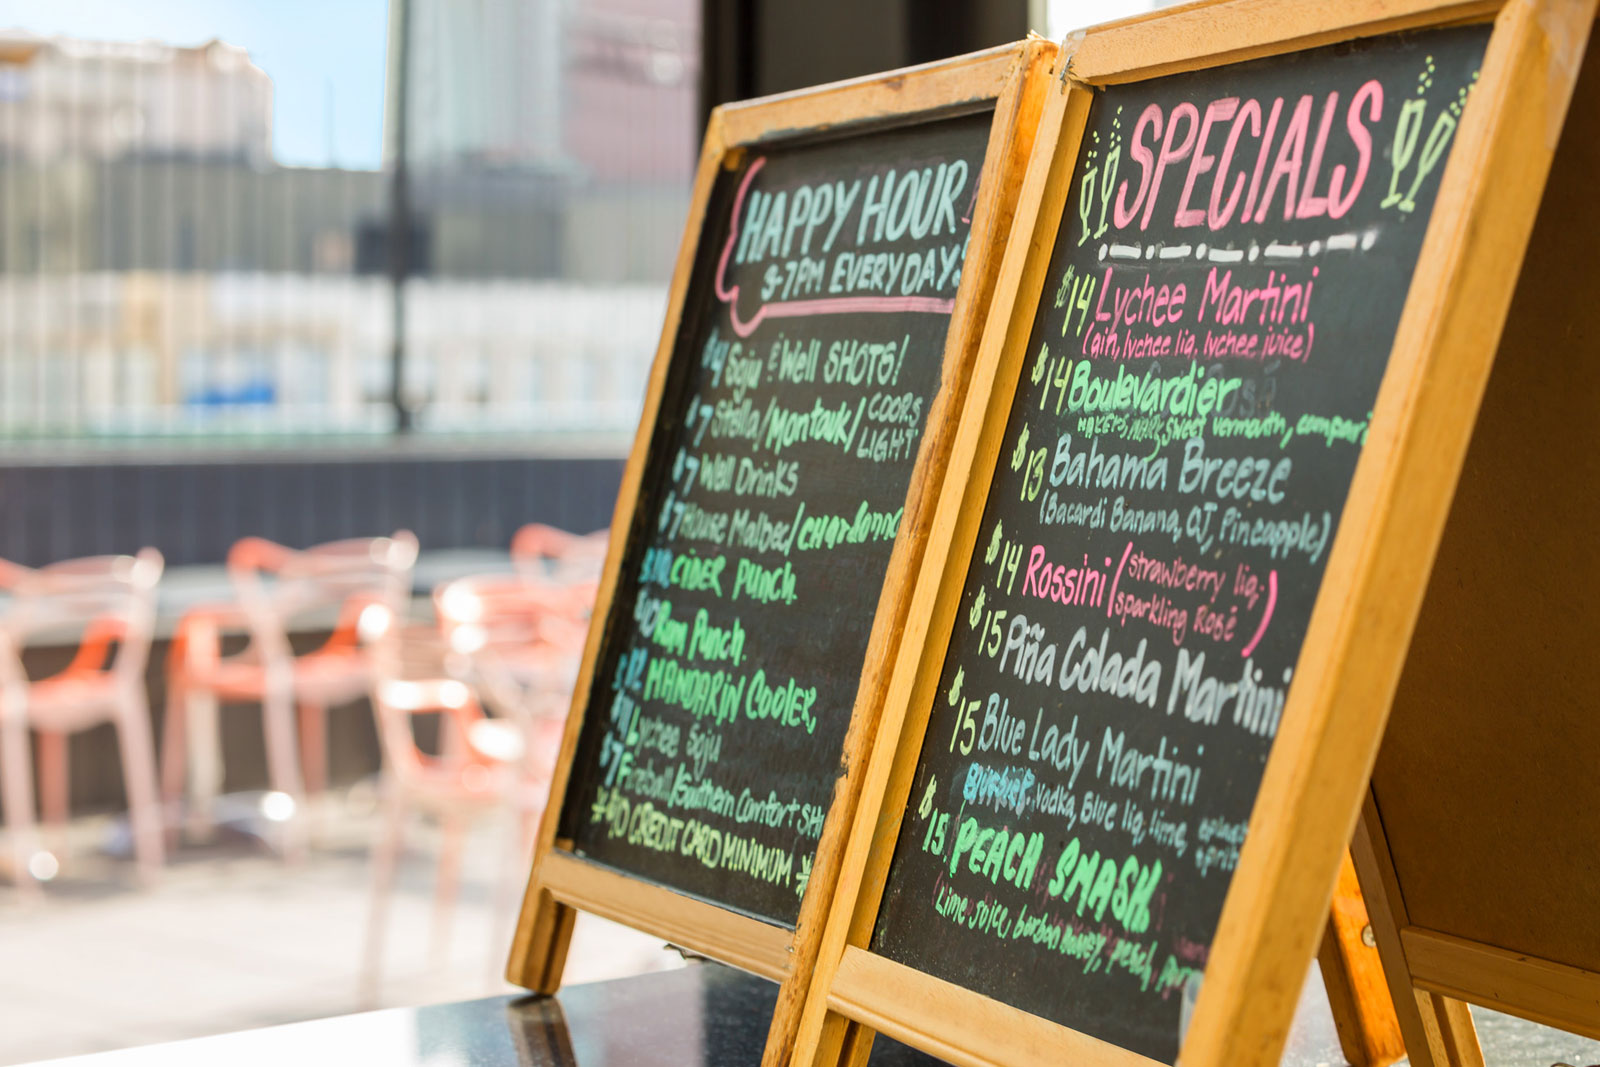 HAPPY HOUR
5-7PM EVERYDAY!
$4 Soju & Well SHOTS!
$7 Stella/Montauk/COORS
LIGHT
$7 Well Drinks
$7 House Malbec/Chardonna
$10 CIDER PUNCH
Rum Punch
$12 MANDARIN COOLER
Lychee Soju
$7 Fireball/Southern Comfort SH
*$10 CREDIT CARD MINIMUM *
SPECIALS
$14 Lychee Martini
(gin, lychee liq, lychee juice)
$14 Boulevardier
sweet vermouth, campari
$13 Bahama Breeze
(Bacardi Banana, OJ, Pineapple)
$14 Rossini (strawberry liq,
sparkling Rosé)
$15 Piña Colada Martini
$15 Blue Lady Martini
vodka, Blue liq, lime,
$15 PEACH SMASH
(Lime juice, bourbon honey, peach,